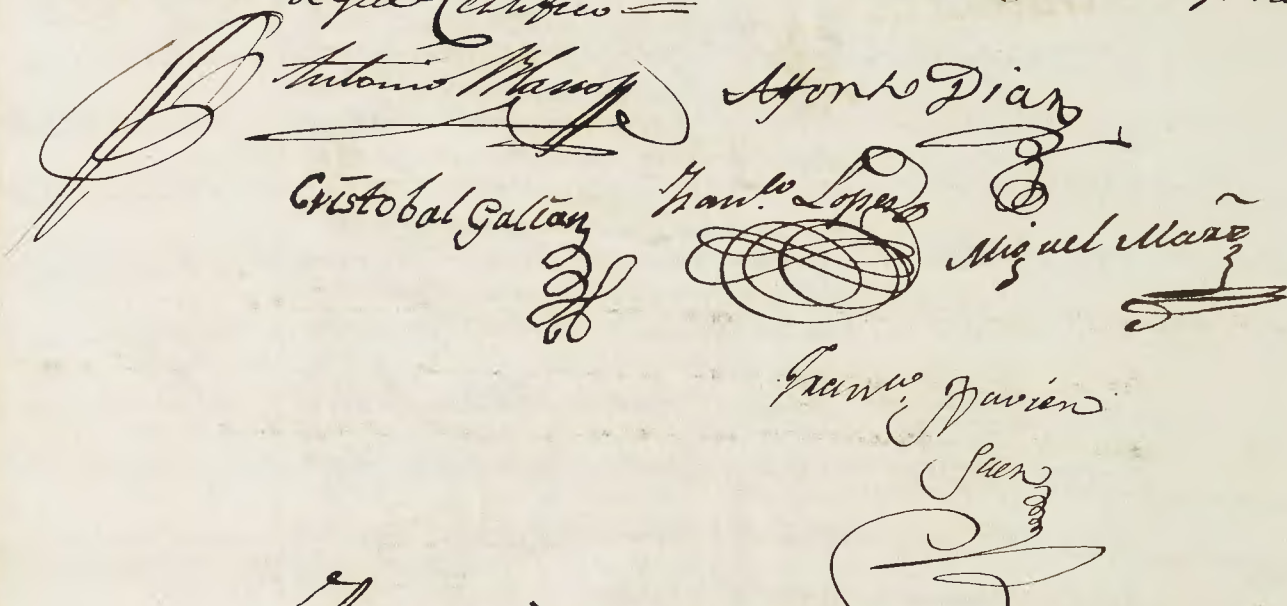 de que Certifico =
Antonio Blasco Alfonso Dian
Cristobal Galian Franco. Lopez Miguel Mañz
Franco. Xavier
Saez